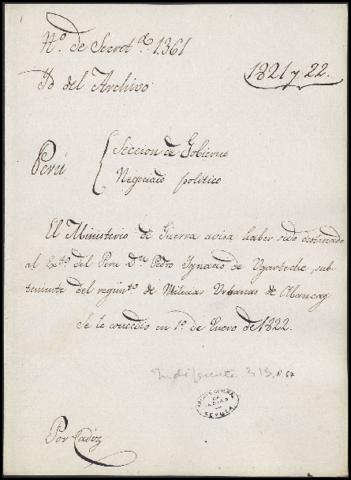 Nº. de Secretª. 1361
Yd del Archivo
1821 y 22.
Perú
Seccion de Gobierno
Negociado político
El Ministerio de Guerra avisa haber sido destinado
al Extº. del Peru Dn. Pedro Ygnacio de Ugarteche, sub-
teniente del regimto. de Milicias Urbanas de Abancay
Se le concedió en 1º. de Enero de 1822.
Indiferente 313, Nº 67
SEVILLA
Por Cadiz